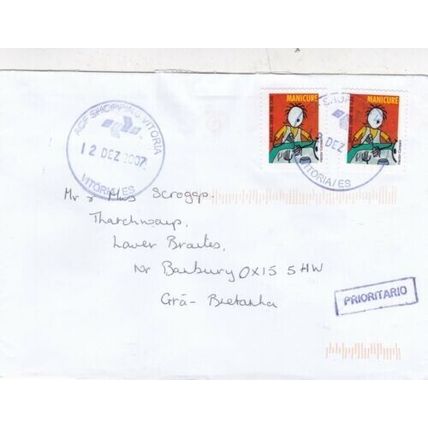 MANICURE
MANICURE
ACF SHOPPING VITORIA
12 DEZ 2007
VITORIA/ES
DEZ
VITORIA/ES
Mr & Mrs Scroggs.
Thatchways,
Lower Brailes,
Nr Banbury OX15 5HW
Grã-Bretanha
PRIORITARIO